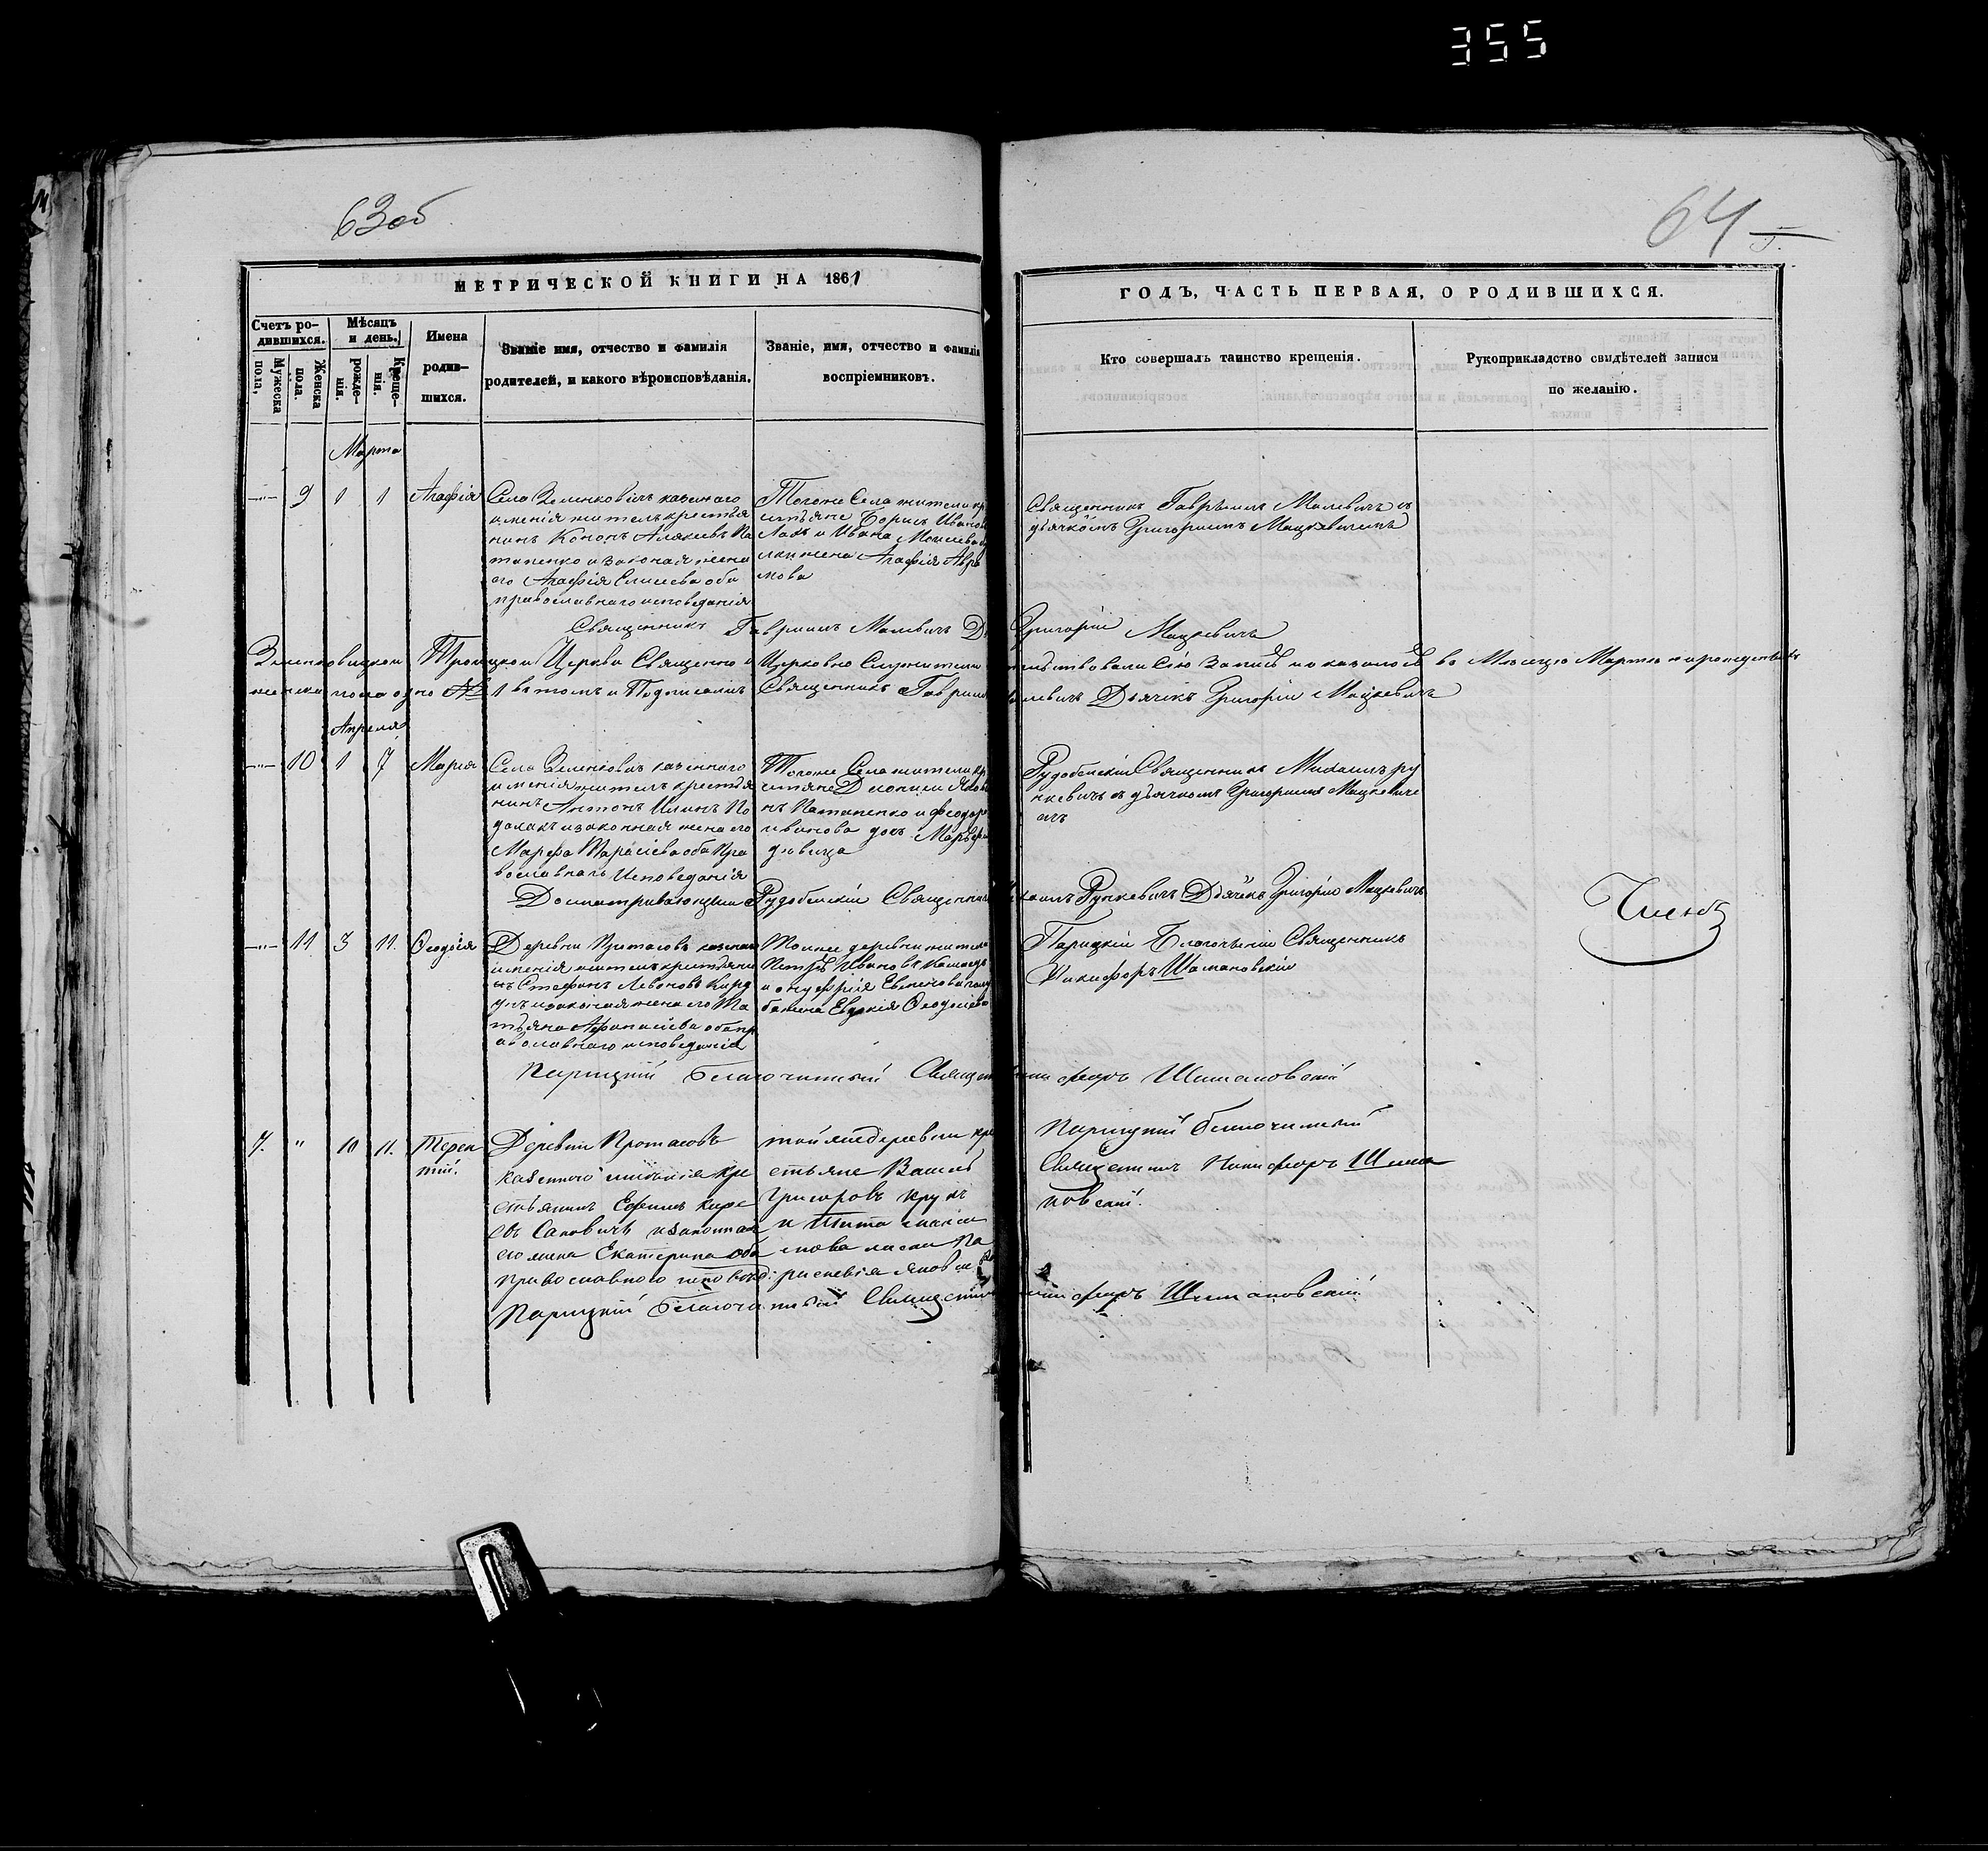 355
63об
64
МЕТРИЧЕСКОЙ КНИГИ НА 1861
ГОДЪ, ЧАСТЬ ПЕРВАЯ, О РОДИВШИХСЯ.
Счетъ ро-
дившихся.
Мужеска
пола,
Женска
пола.
Мѣсяцъ
и день.
рожде-
нія.
Креще-
нія.
Имена
родив-
шихся.
Званіе имя, отчество и фамилія
родителей, и какого вѣроисповѣданія.
Званіе, имя, отчество и фамилія
воспріемниковъ.
Кто совершалъ таинство крещенія.
Рукоприкладство свидѣтелей записи
по желанію.
Марта
9 1 1 Агафія
Села Зеленковичъ казеннаго
имѣнія житель крестья
нинъ Кононъ Алексѣевъ По
тапенко и законная жена
его Агафія Елисѣева оба
православнаго исповеданія
Тогоже Села жители кр
стьяне Борисъ Иванов
и Ивана Моисѣева
жена Агафія Авра
мова
Священникъ Гавріилъ Малевичъ съ
дьячкомъ Григоріемъ Мацкевичемъ
Священникъ Гавріилъ Малевичъ
Григорій Мацкевичъ
Зеленковицкой Троицкой Церкви Священно и Церковно Служители
Сію Запись и оказалось въ Мѣсяцѣ Мартѣ
женска пола одно № 1 въ томъ и Подписались Священникъ Гавріилъ
Малевичъ Дьячекъ Григорій Мацкевичъ
Апреля
10 1 7 Марія
Села Зеленковичъ казеннаго
имѣнія житель крестья
нинъ Антонъ Ильинъ По
и законная жена его
Марфа Тарасіева оба Пра
вославнаго Исповеданія
Тогоже Села жители кр
стьяне Діонисій
нъ Потапенко и Феодора
иванова дочь
девица
Рудобельскій Священникъ Михаилъ Ру
нкевичъ съ дьячкомъ Григоріемъ Мацкевиче
мъ
Досматривающій Рудобельскій Священникъ
Михаилъ Рункевичъ Дьячекъ Григорій Мацкевичъ
11 3 11. Ѳеодосія
Деревни Протасовъ казеннаго
имѣнія житель крестьяни
нъ Стефанъ Левоновъ
и законная жена его Та
тьяна Афанасіева оба пр
авославнаго исповеданія
Тойже деревни жители
Петръ Ивановъ
и онуфрія Евменова
жена Евдокія Ѳеодосіева
Парицкій Благочинній Священникъ
Никифоръ Шимановскій
Парицкій Благочинный Священ
никифоръ Шимановскій
7. " 10 11. Терен
тій.
Деревни Протасовъ
казеннаго имѣнія кре
стьянинъ Ефимъ Кире
евъ Сановичъ и законная
его жена Екатерина оба
православнаго исповѣд:
тойже деревни кре
стьяне Василь
Григоровъ Крукъ
и Тита
жена Па
раскевія
Парицкій благочинный
Священникъ Никифоръ Шима
новскій.
Парицкій Благочинный Священникъ
никифоръ Шимановскій